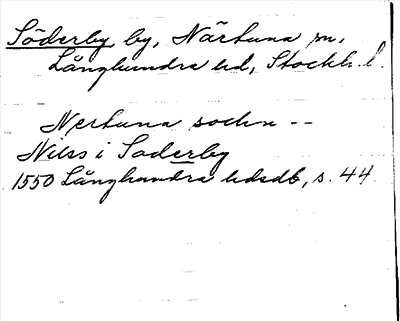 Söderby, by, Närtuna sn,
Långhundra hd, Stockh. l.
Nertuna sochn --
Nilss i Soderby
1550 Långhundra hdsdb, s. 44.